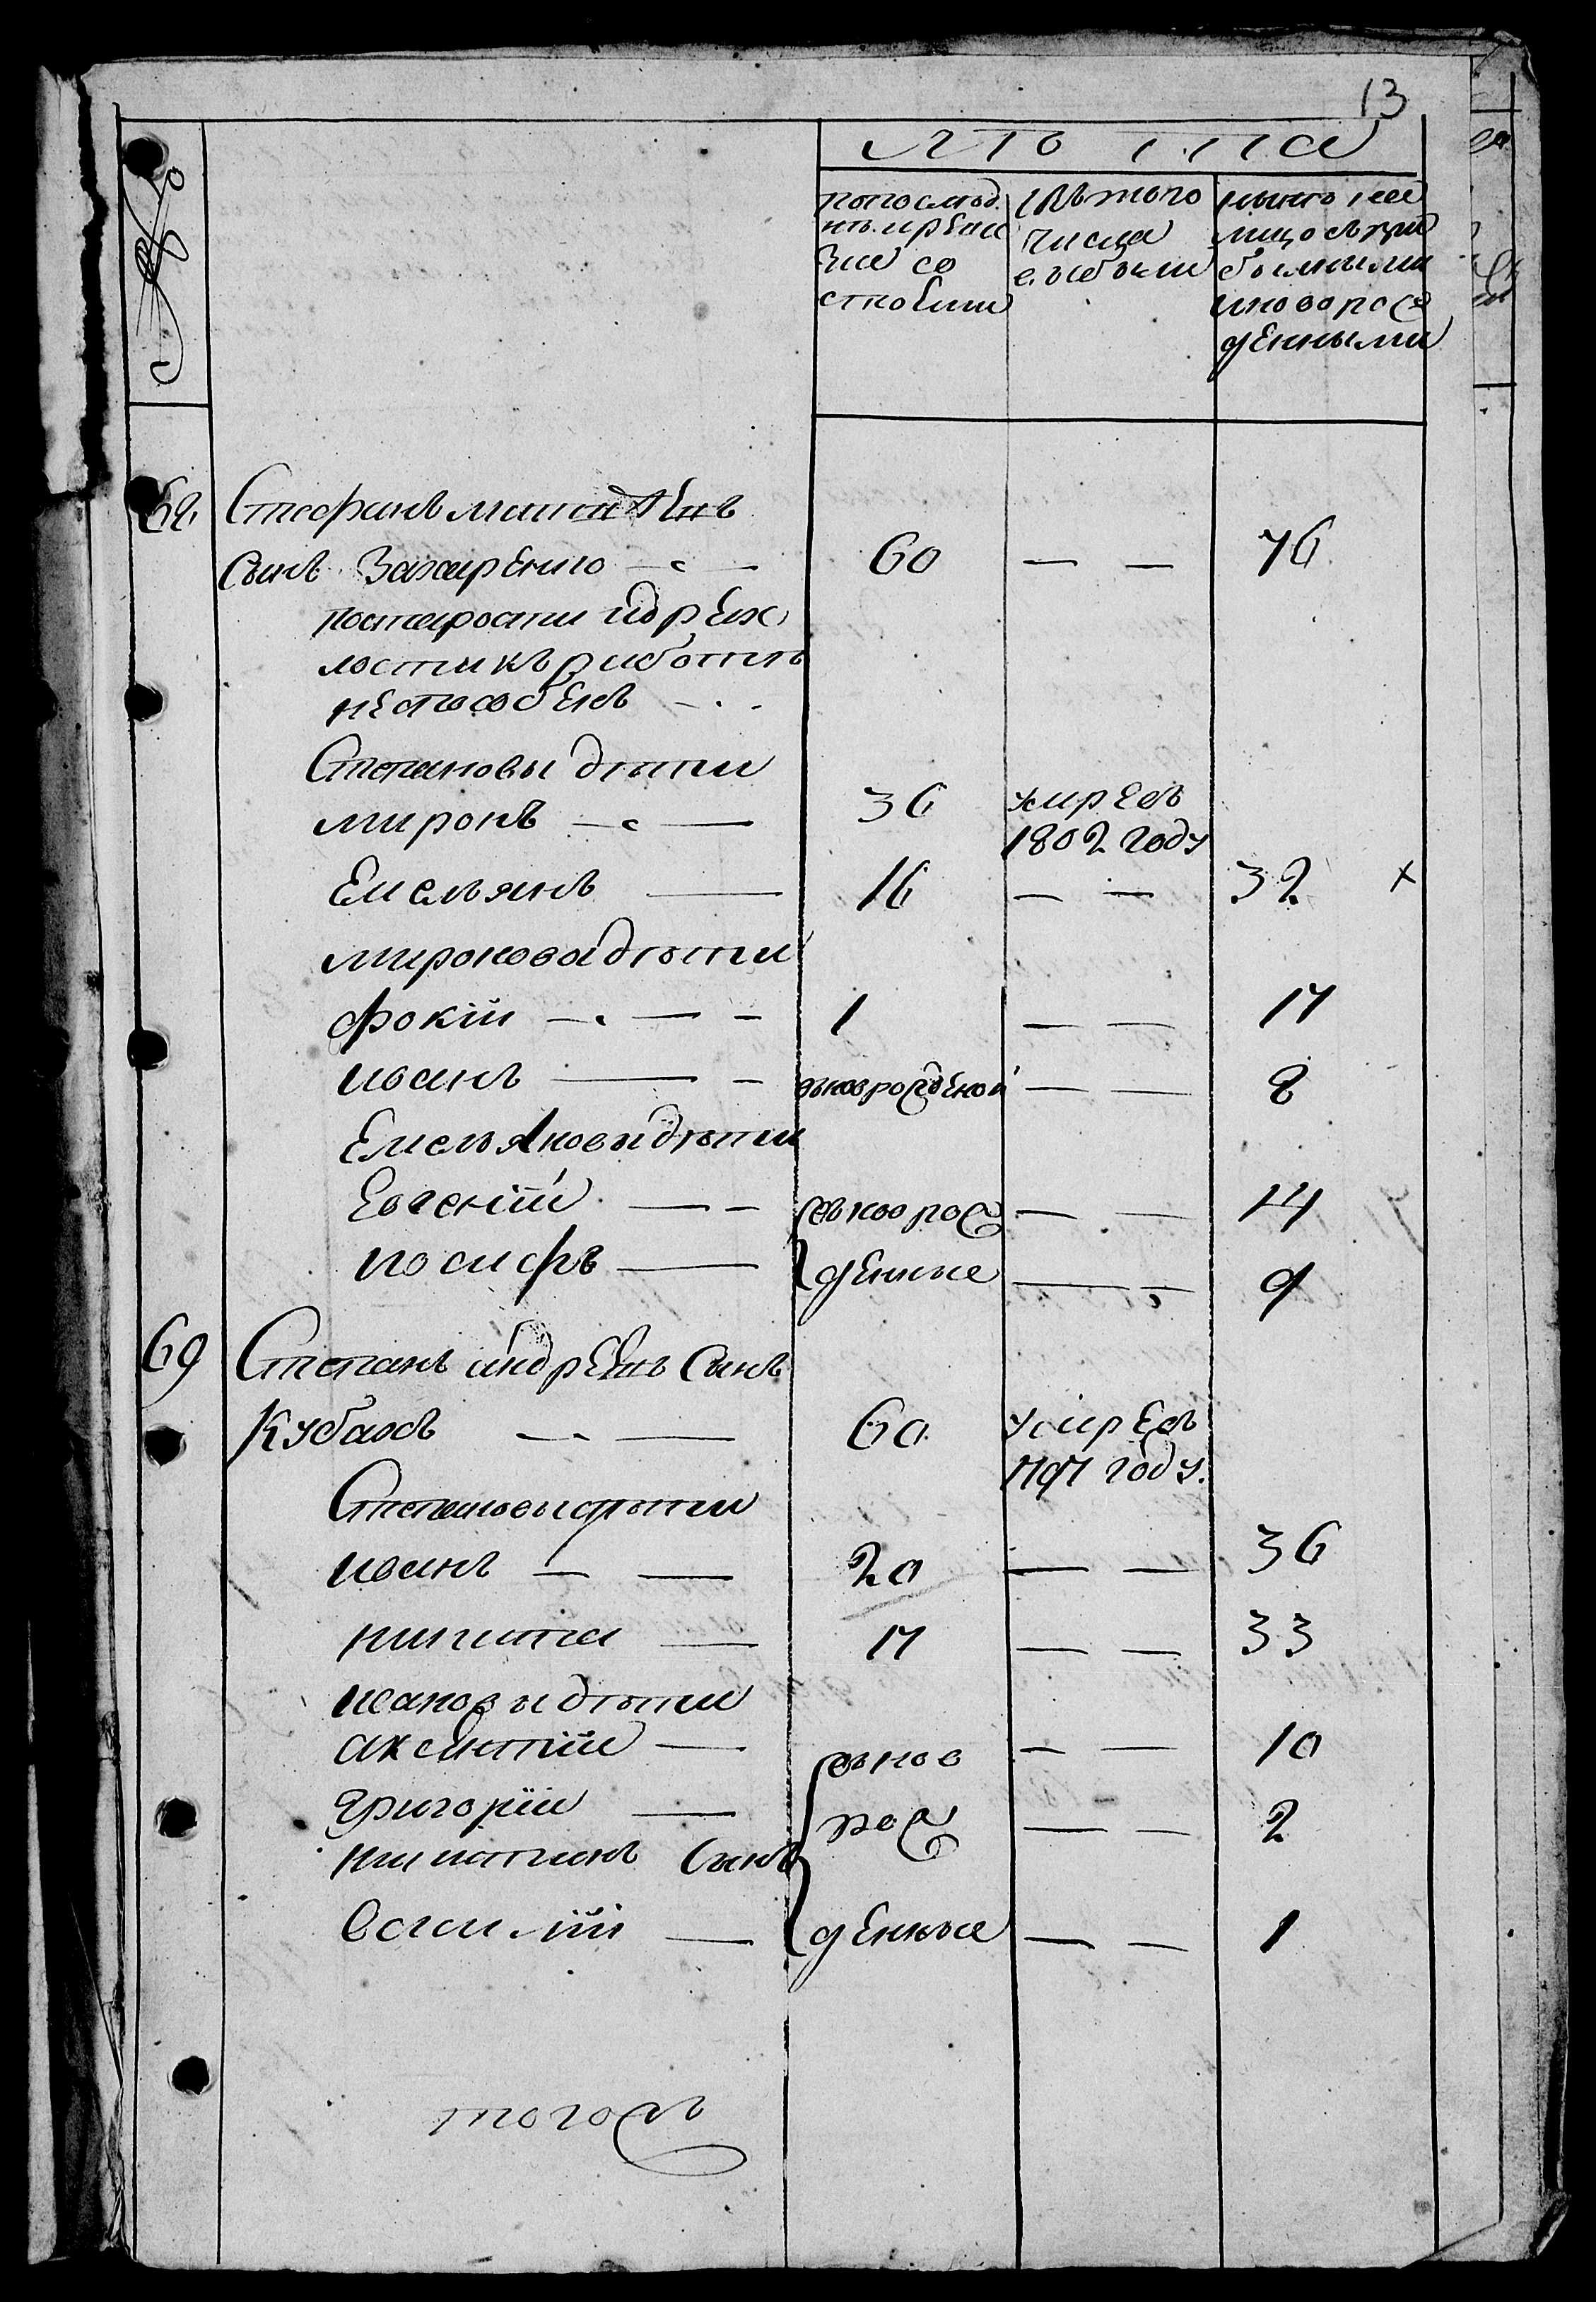 13
№
лѣта
попослѣд
нѣй ревизии со
стояли
изъ того
числа
выбыли
ныне на
лицо съ при
былыми
и новорож
денными
68 Стефанъ
сынъ Захаренко 60 — — 76
постарости идрях
лости къ работѣ
неспособенъ
Степановы дѣти
миронъ — 36 умре въ
1802 году
Емельянъ — 16 — — 32 х
мироновы дѣти
фокій — 1 — — 17
иванъ — вновьрожденой — — 8
Емельяновы дѣти
Евгеній — вновь рож — — 14
иосифъ — денные — — 9
69 Степанъ андреевъ сынъ
Кубахъ — 60 умре въ
1797 году.
Степановы дѣти
иванъ — 20 — — 36
никита — 17 — — 33
ивановы дѣти
аксентій — внов — — 10
григорій — рож — — 2
никитинъ сынъ
василій — денные — — 1
тогожъ